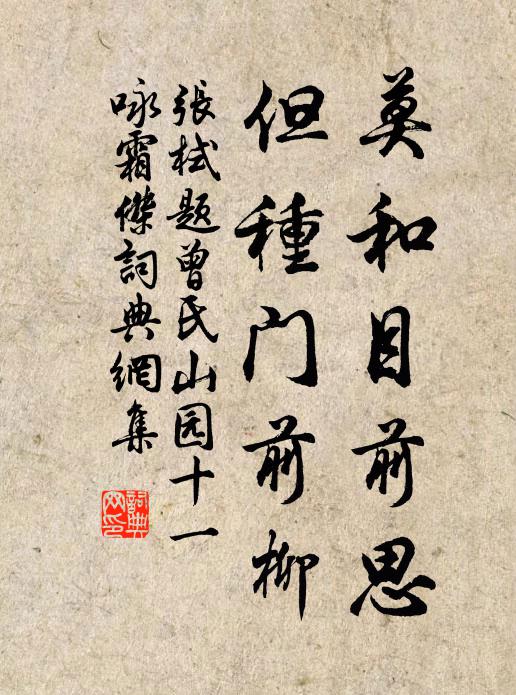 莫和目前思
但種门前柳
張栻题曾氏山园十一
咏霜傑詞典網集
詞典
网印